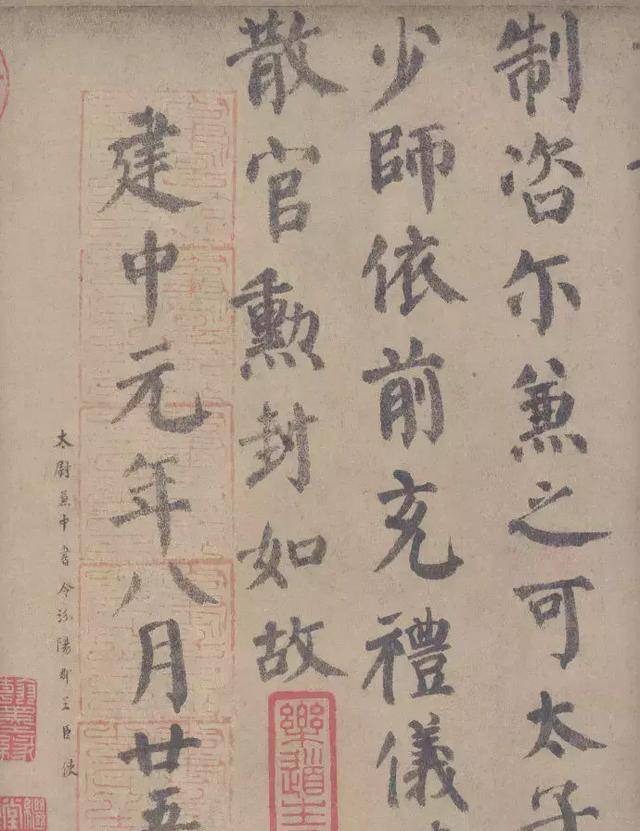 制咨尔兼之可太子
少師依前充禮儀
散官勳封如故
建中元年八月廿五
太尉兼中書令汾陽郡王臣使
樂道主